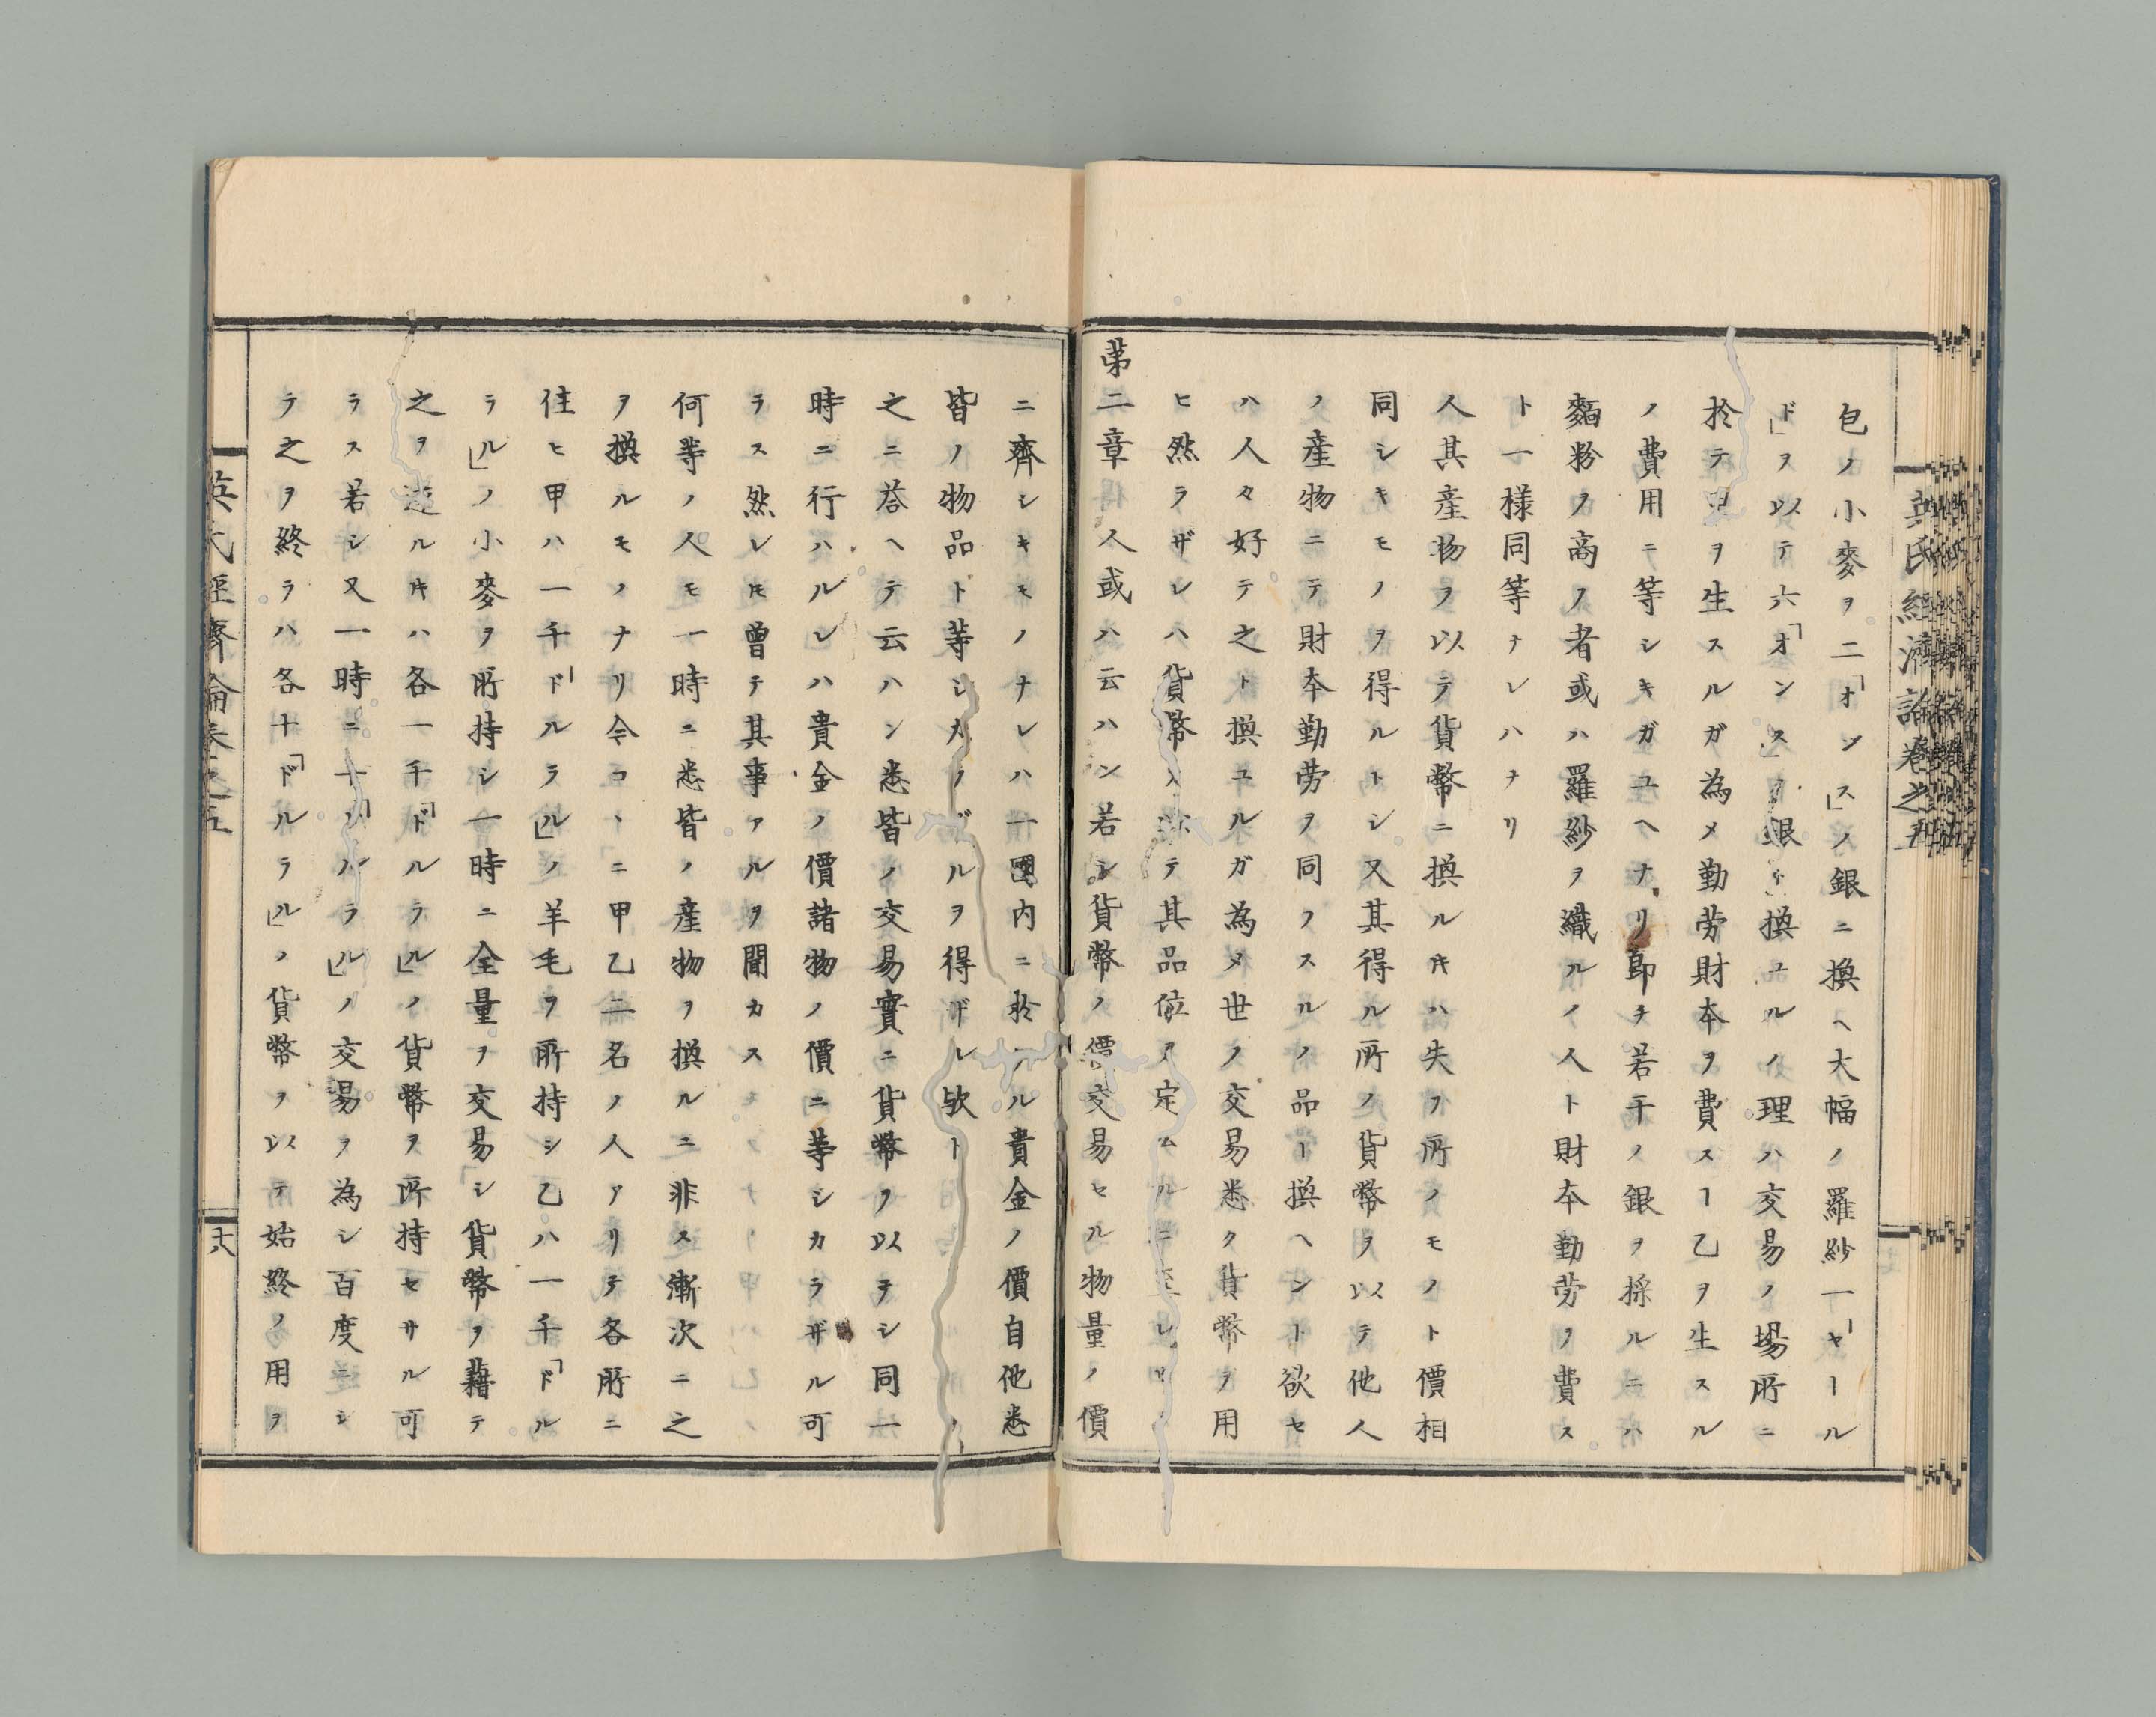 英氏經濟論卷之五
包ノ小麥ヲ二「オンス」ノ銀ニ換ヘ大幅ノ羅紗一「ヤール
ド」ヲ以テ六「オンス」ノ銀ト換ユルノ理ハ交易ノ場所ニ
於テ甲ヲ生スルガ為メ勤労財本ヲ費スー乙ヲ生スル
ノ費用ニ等シキガユヘナリ即チ若干ノ銀ヲ採ルニハ
麵粉ヲ商フ者或ハ羅紗ヲ織ルノ人ト財本勤労ヲ費ス
ト一様同等ナレハナリ
人其産物ヲ以テ貨幣ニ換ルキハ失フ所ノモノト價相
同シキモノヲ得ルトシ又其得ル所ノ貨幣ヲ以テ他人
ノ産物ニテ財本勤労ヲ同フスルノ品ー換ヘント欲セ
ハ人々好テ之ト換ユルガ為メ世ノ交易悉ク貨幣ヲ用
ヒ然ラザレハ貨幣ヽテ其品位ヲ定ムルニ至レリ
第二章 人或ハ云ハン若シ貨幣ノ價交易セル物量ノ價
ニ齊シキモノナレハ一國内ニ於ケル貴金ノ價自他悉
皆ノ物品ト等シカラザルヲ得ザル欤ト
之ニ荅ヘテ云ハン悉皆ノ交易實ニ貨幣ヲ以テシ同一
時ニ行ハルレハ貴金ノ價諸物ノ價ニ等シカラザル可
ラス然レ𪜈曽テ其事アルヲ聞カス
何等ノ人モ一時ニ悉皆ノ産物ヲ換ルニ非ス漸次ニ之
ヲ換ルモノナリ今コヽニ甲乙二名ノ人アリテ各所ニ
住ヒ甲ハ一千「ドルラル」ノ羊毛ヲ所持シ乙ハ一千「ドル
ラル」ノ小麥ヲ所持シ一時ニ全量ヲ交易シ貨幣ヲ藉テ
之ヲ ルキハ各一千「ドルラル」ノ貨幣ヲ所持セサル可
ラス若シ又一時ニ十「ドルラル」ノ交易ヲ為シ百度ニシ
テ之ヲ終ラハ各十「ドルラル」ノ貨幣ヲ以テ始終ノ用ヲ
英氏經濟論卷之五
十八